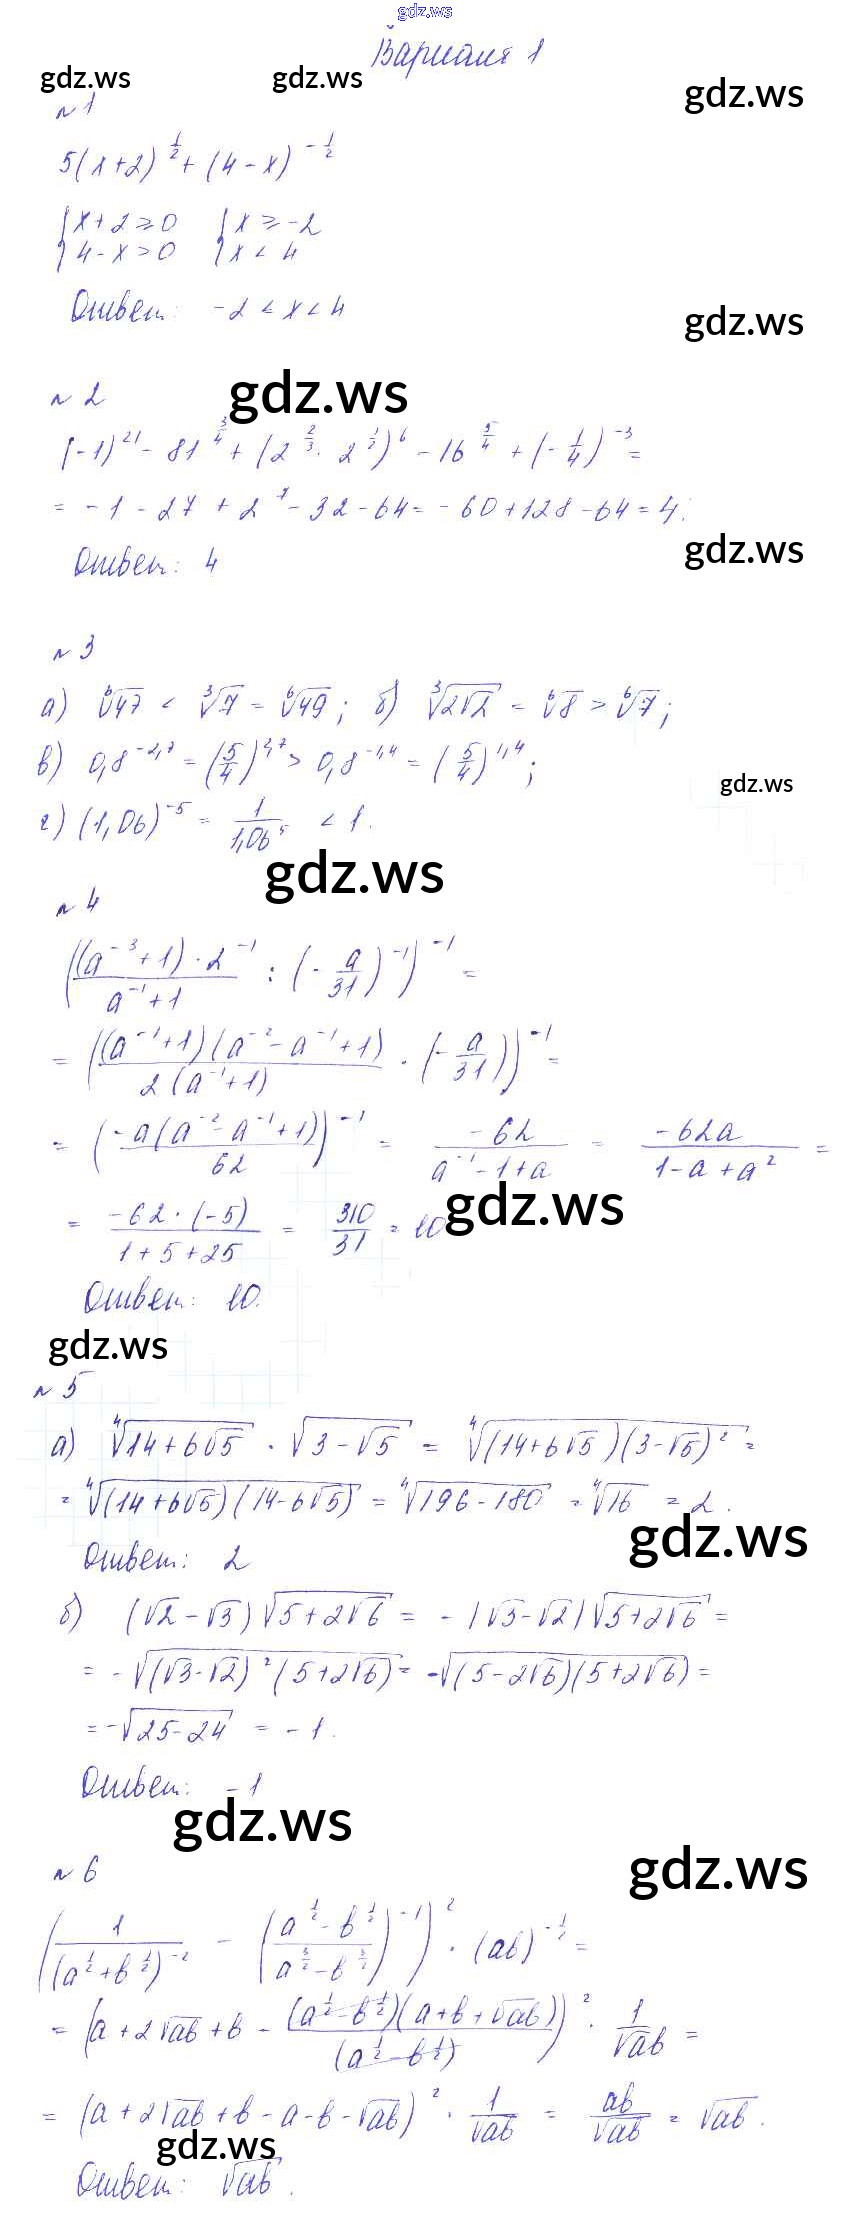 gdz.ws
Вариант 1
gdz.ws gdz.ws gdz.ws
n 1
5(x+2)^{1/2} + (4-x)^{-1/2}
{x+2≥0 {x≥-2
{4-x>0 {x<4
Ответ: -2<x<4
gdz.ws
n 2
gdz.ws
(-1)^{21} - 81^{3/4} + (2^{2/3} · 2^{1/2})^6 - 16^{5/4} + (-1/4)^{-3} =
= -1 - 27 + 2^7 - 32 - 64 = -60+128-64 = 4;
gdz.ws
Ответ: 4
n 3
а) ⁶√47 < ³√7 = ⁶√49; б) ³√(2√2) = ⁶√8 > ⁶√7;
в) 0,8^{-2,7} = (5/4)^{2,7} > 0,8^{-1,4} = (5/4)^{1,4};
gdz.ws
г) (1,06)^{-5} = 1/1,06^5 < 1.
gdz.ws
n 4
((a^{-3}+1)·2^{-1}/(a^{-1}+1) : (-a/31)^{-1})^{-1} =
= ((a^{-1}+1)(a^{-2}-a^{-1}+1)/(2(a^{-1}+1)) · (-a/31))^{-1} =
= (-a(a^{-2}-a^{-1}+1)/62)^{-1} = -62/(a^{-1}-1+a) = -62a/(1-a+a²) =
gdz.ws
= -62·(-5)/(1+5+25) = 310/31 = 10
Ответ: 10.
gdz.ws
n 5
а) ⁴√(14+6√5) · √(3-√5) = ⁴√((14+6√5)(3-√5)²) =
= ⁴√((14+6√5)(14-6√5)) = ⁴√(196-180) = ⁴√16 = 2.
gdz.ws
Ответ: 2
б) (√2-√3)√(5+2√6) = -(√3-√2)√(5+2√6) =
= -√((√3-√2)²(5+2√6)) = -√((5-2√6)(5+2√6)) =
= -√(25-24) = -1.
Ответ: -1
gdz.ws
gdz.ws
n 6
(1/(a^{1/2}+b^{1/2})^{-2} - ((a^{1/2}-b^{1/2})/(a^{3/2}-b^{3/2}))^{-1})² · (ab)^{-1/2} =
= (a+2√ab+b - (a^{1/2}-b^{1/2})(a+b+√ab)/(a^{1/2}-b^{1/2}))² · 1/√ab =
= (a+2√ab+b-a-b-√ab)² · 1/√ab = ab/√ab = √ab.
gdz.ws
Ответ: √ab.